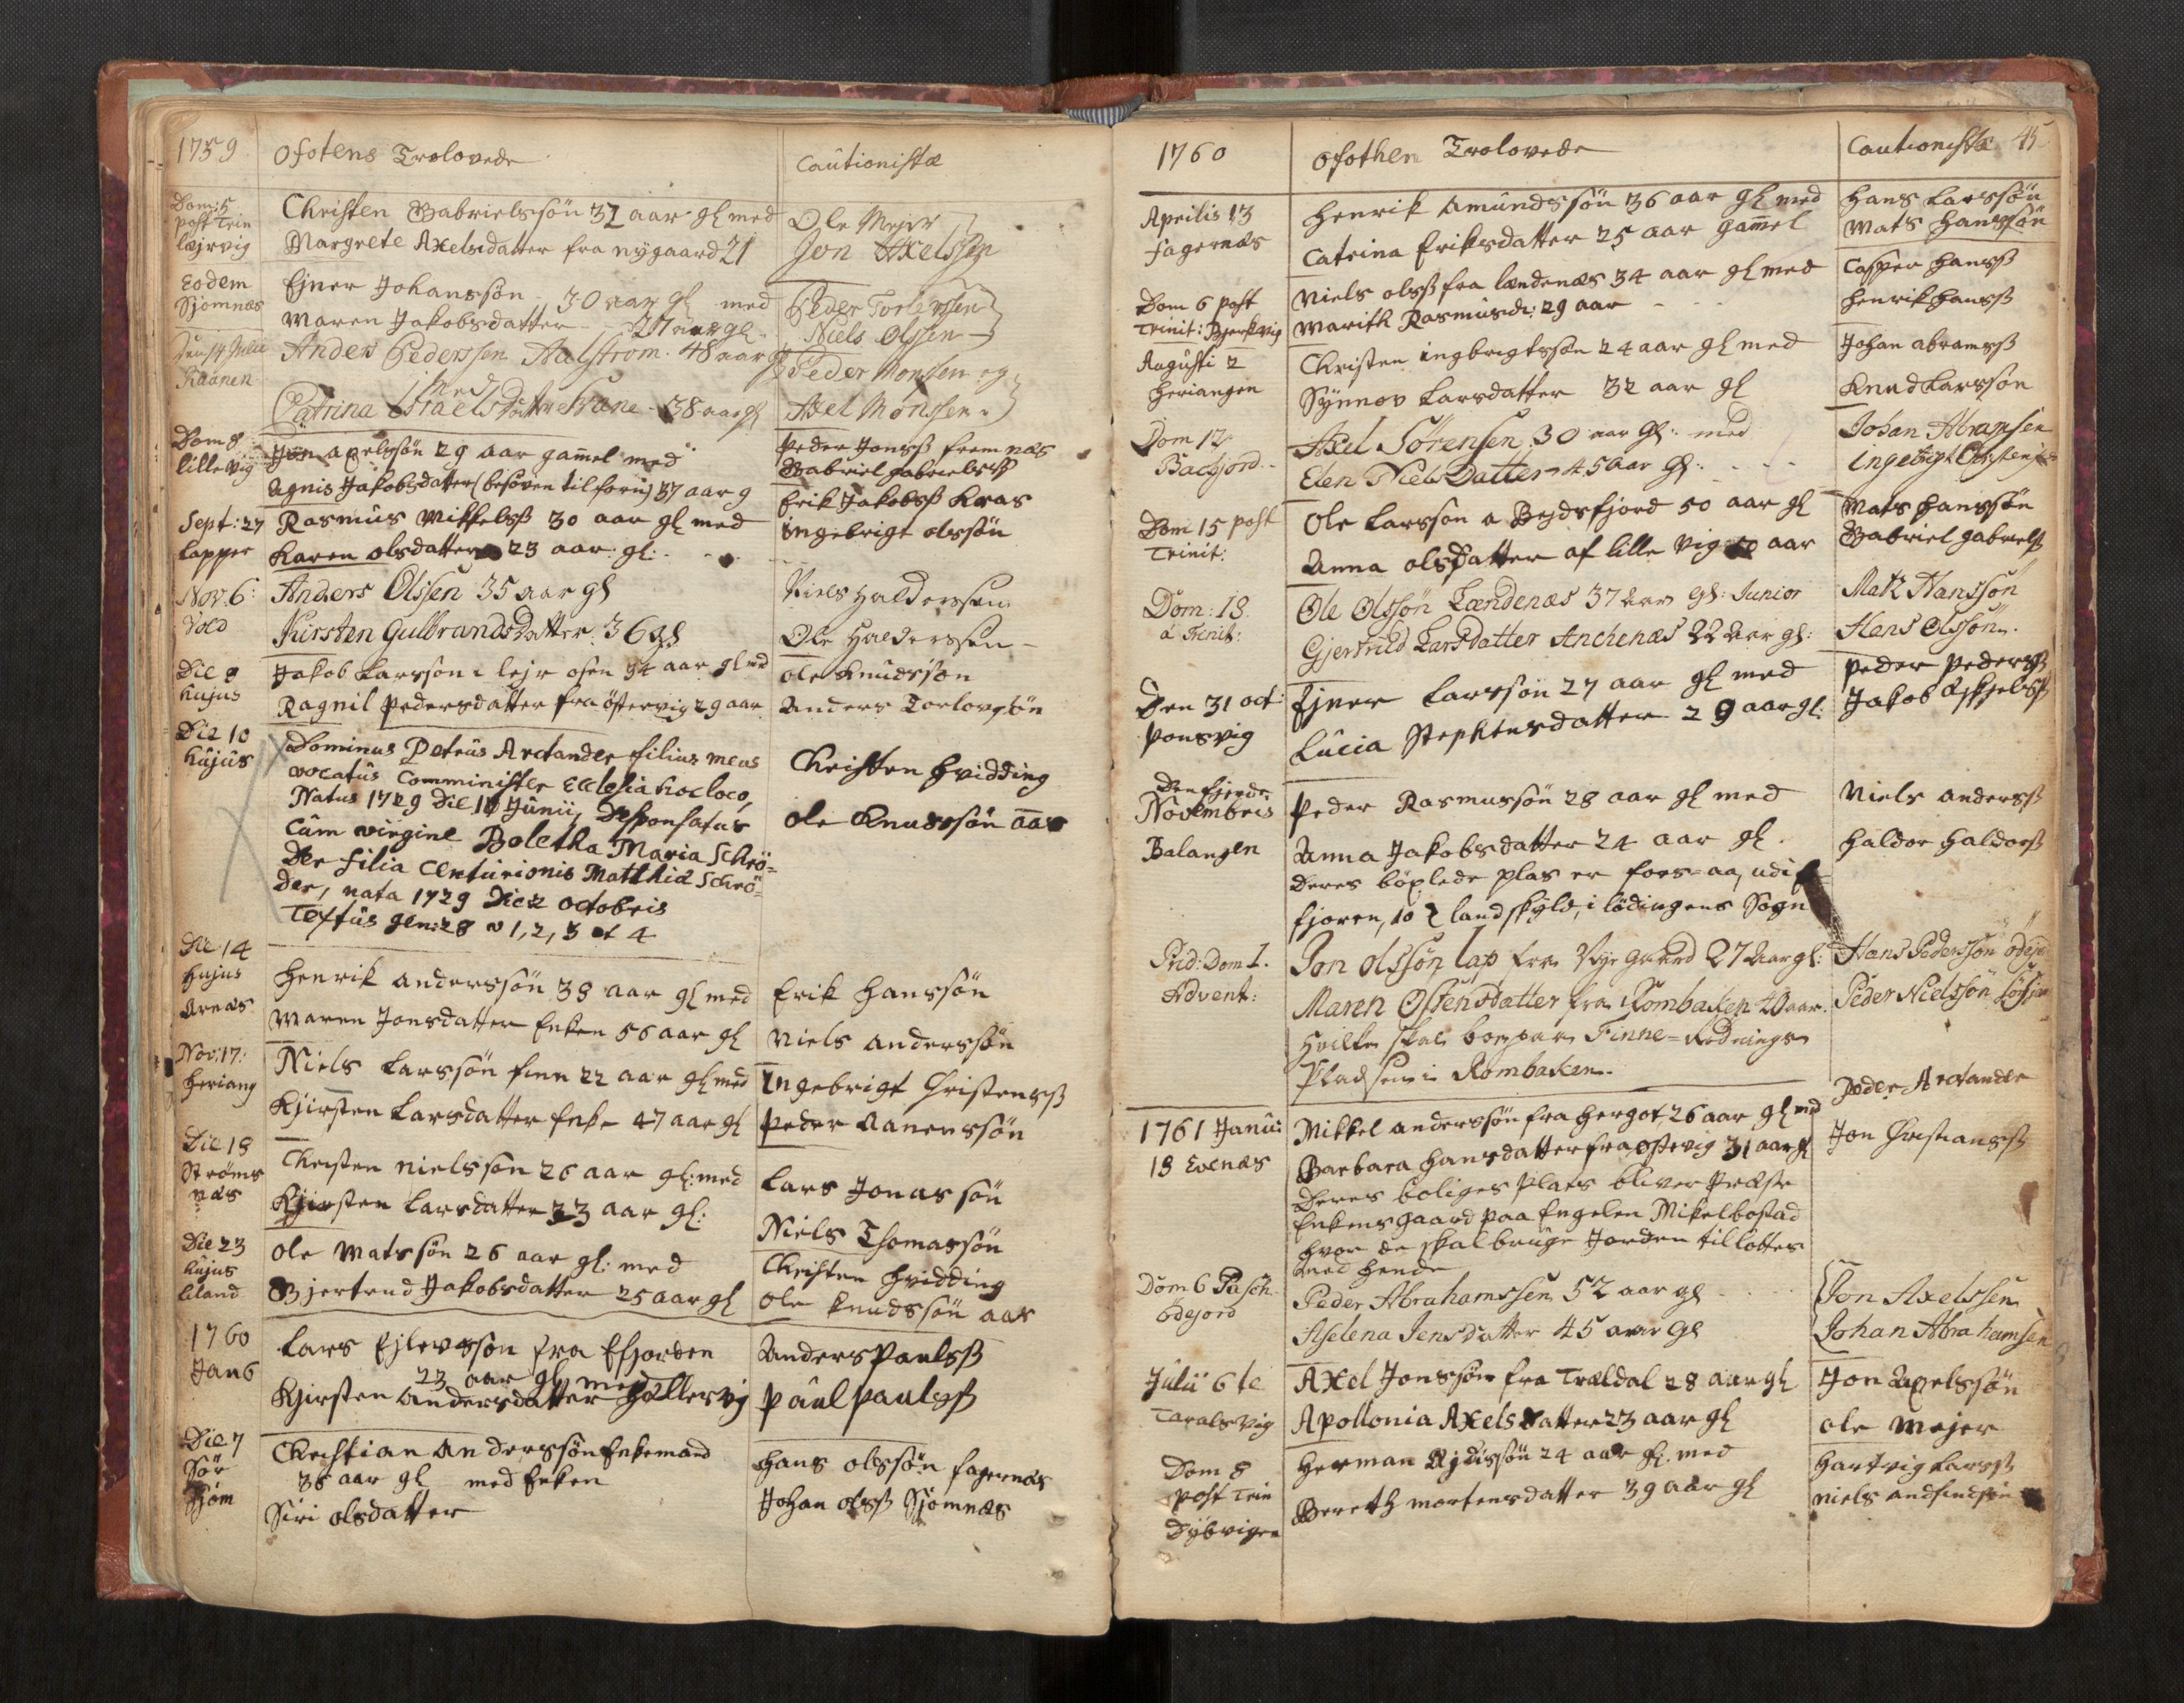 1759
Ofotens Trolovede
Cautionistæ
Dom: 5
post Trin
lejrvig
Christen Gabrielssøn 32 aar gl med
Margrete Axelsdatter fra nygaard 21
Ole Mejer
Jon Axelssen
Eodem
Sjomnæs
Ejner Johanssøn 30 aar gl med
Maren Jakobsdatter 27 aar gl.
Peder Torlevsen
Niels Olssen
Den 14 Julii
Raanen
Anders Pederssen Aalstrøm. 48 aar gl
med
Catrina Israels Datter Krane - 38 aar gl
Peder Monssen og
Axel Monssen.
Dom 8
lillevig
Jon axelssøn 29 aar gam̄el med
Agnis Jakobsdatter (besoven tilforn) 37 aar g
Peder Jonsß fremnæs
Gabriel gabrielsß
Sept: 27
Lapper
Rasmus Mikkelsß 30 aar gl med
Karen olsdatter 23 aar: gl:
Erik Jakobsß Kras
ingebrigt olssøn
Nov. 6:
Vold
Anders Olssen 35 aar gl
Kirsten Gulbrands Datter. 36 gl
Niels Halderssen
Ole Halderssen
Die 8
hujus
Jakob Larsson i lejrosen 34 aar gl med
Ragnil Pedersdatter fra østervig 29 aar
ole Knudssøn
Anders Torlovsøn
Die 10
hujus
Dominus Petrus Arctander filius meus
vocatus Comminister Ecclesia hoc loco,
Natus 1729 die 10 Junii, Desponsatus
Cum virgine Boletha Maria Schrö=
der filia Centurionis Matthiæ Schrö=
der, nata 1729 Die 2 octobris
Textus Gen: 28 v 1, 2, 3 et 4
Christen Hvidding
ole Knudssøn aas
Die 14
hujus
Arnæs
Henrik anderssøn 38 aar gl med
Maren Jonsdatter Enken 56 aar gl
Erik Hanssøn
Niels anderssøn
Nov: 17:
Heriang
Niels Larssøn finn 22 aar gl med
Kjirsten Larsdatter Enke 47 aar gl
Ingebrigt Christensß
Peder Aanenssøn
Die 18
Strøms
næs
Christen Nielssøn 26 aar gl: med
Kjirsten Larsdatter 33 aar gl:
Lars Jonassøn
Niels Thomassøn
Die 23
hujus
Liland
Ole Matssøn 26 aar gl: med
Gjertrud Jakobsdatter 25 aar gl
Christen Hvidding
ole Knudssøn aas
1760
Jan 6
Lars Ejlevssøn fra Efjorden
23 aar gl med
Kjirsten Andersdatter Hallervig
Anders Paulsß
Paul paulsß
Die 7
Sør
Sjom
Christian Anderssøn Enkemand
36 aar gl med Enken
Siri olsdatter
Hans olssøn fagernæs
Johan olsß Sjomnæs
1760
Ofothen Trolovede
Cautionistæ 45
Aprilis 13
fagernæs
Henrik Amundssøn 36 aar gl med
Catrina Eriksdatter 25 aar gam̄el
Hans Larssøn
Mats Hanssøn
Dom 6 post
Trinit: Bjerkvig
Niels olsß fra lændenæs 34 aar gl med
Marith Rasmusd: 29 aar
Casper Hansß
Henrik Hansß
Augusti 2
Heriangen
Christen ingbrigtssøn 24 aar gl med
Synnov Larsdatter 32 aar gl
Johan abramsß
Knud Larssøn
Dom 12
Badfjord
Axel Sørensen 30 aar gl: med
Elen Niels Datter 45 aar gl:
Johan Abramsen
Ingebrigt Christens:
Dom 15 post
Trinit:
Ole Larsson a Bejdsfjord 50 aar gl
Anna olsdatter af lille vig 50 aar
Mats Hanssøn
Gabriel gabrielsß
Dom: 18
a Trinit:
Ole Olssøn Lændenæs 37 aar gl: Junior
Gjertrud Larsdatter Anchenæs 22 aar gl:
Matz Hanssøn
Hans Olssøn.
Den 31 oct:
Ponsvig
Ejner Larssøn 27 aar gl med
Lucia Stephensdatter 29 aar gl:
Peder Pedersß
Jakob Eskjelsß
Den fjerde
Novembris
Balangen
Peder Rasmussøn 28 aar gl med
Anna Jakobsdatter 24 aar gl.
Deres böxlede plas er fors=aa, udi E
fjoren, 10 landskyld, i lödingens Sogn
Niels andersß
Haldor Haldorsß
Prid: Dom 1.
Advent:
Jon olssøn lap fra Nye gaard 27 aar gl:
Maren Ostensdatter fra Rombaken 40 aar.
Hvilke skal boe paa Finne-Rødnings
Pladsen i Rombaken.
Hans Pederssøn
Peder Nielssøn
1761 Janu:
18 Evenæs
Mikkel anderssøn fra Hergot, 26 aar gl med
Barbara Hansdatter fra østervig 31 aar gl
Deres boliges Plads bliver Præste
Enkens gaard paa Engeløn Mikelbostad
hvor de skal bruge Jorden tillottes
med hende
Peder Arctander
Jon Christiansß
Dom 6 Pasch
ödejord
Peder Abrahamssen 52 aar gl
Helena Jensdatter 45 aar gl
Jon Axelssen
Johan Abrahamsen
Julii 6te
Taralsvig
Axel Jonssøn fra Traldal 28 aar gl
Apollonia Axels Datter 23 aar gl
Jon Axelssøn
ole Mejer
Dom 8
post Trin
Dybvigen
Herman Ejdissøn 24 aar gl: med
Bereth mortensdatter 39 aar gl
Hartvig Larsß
Niels andfindsøn